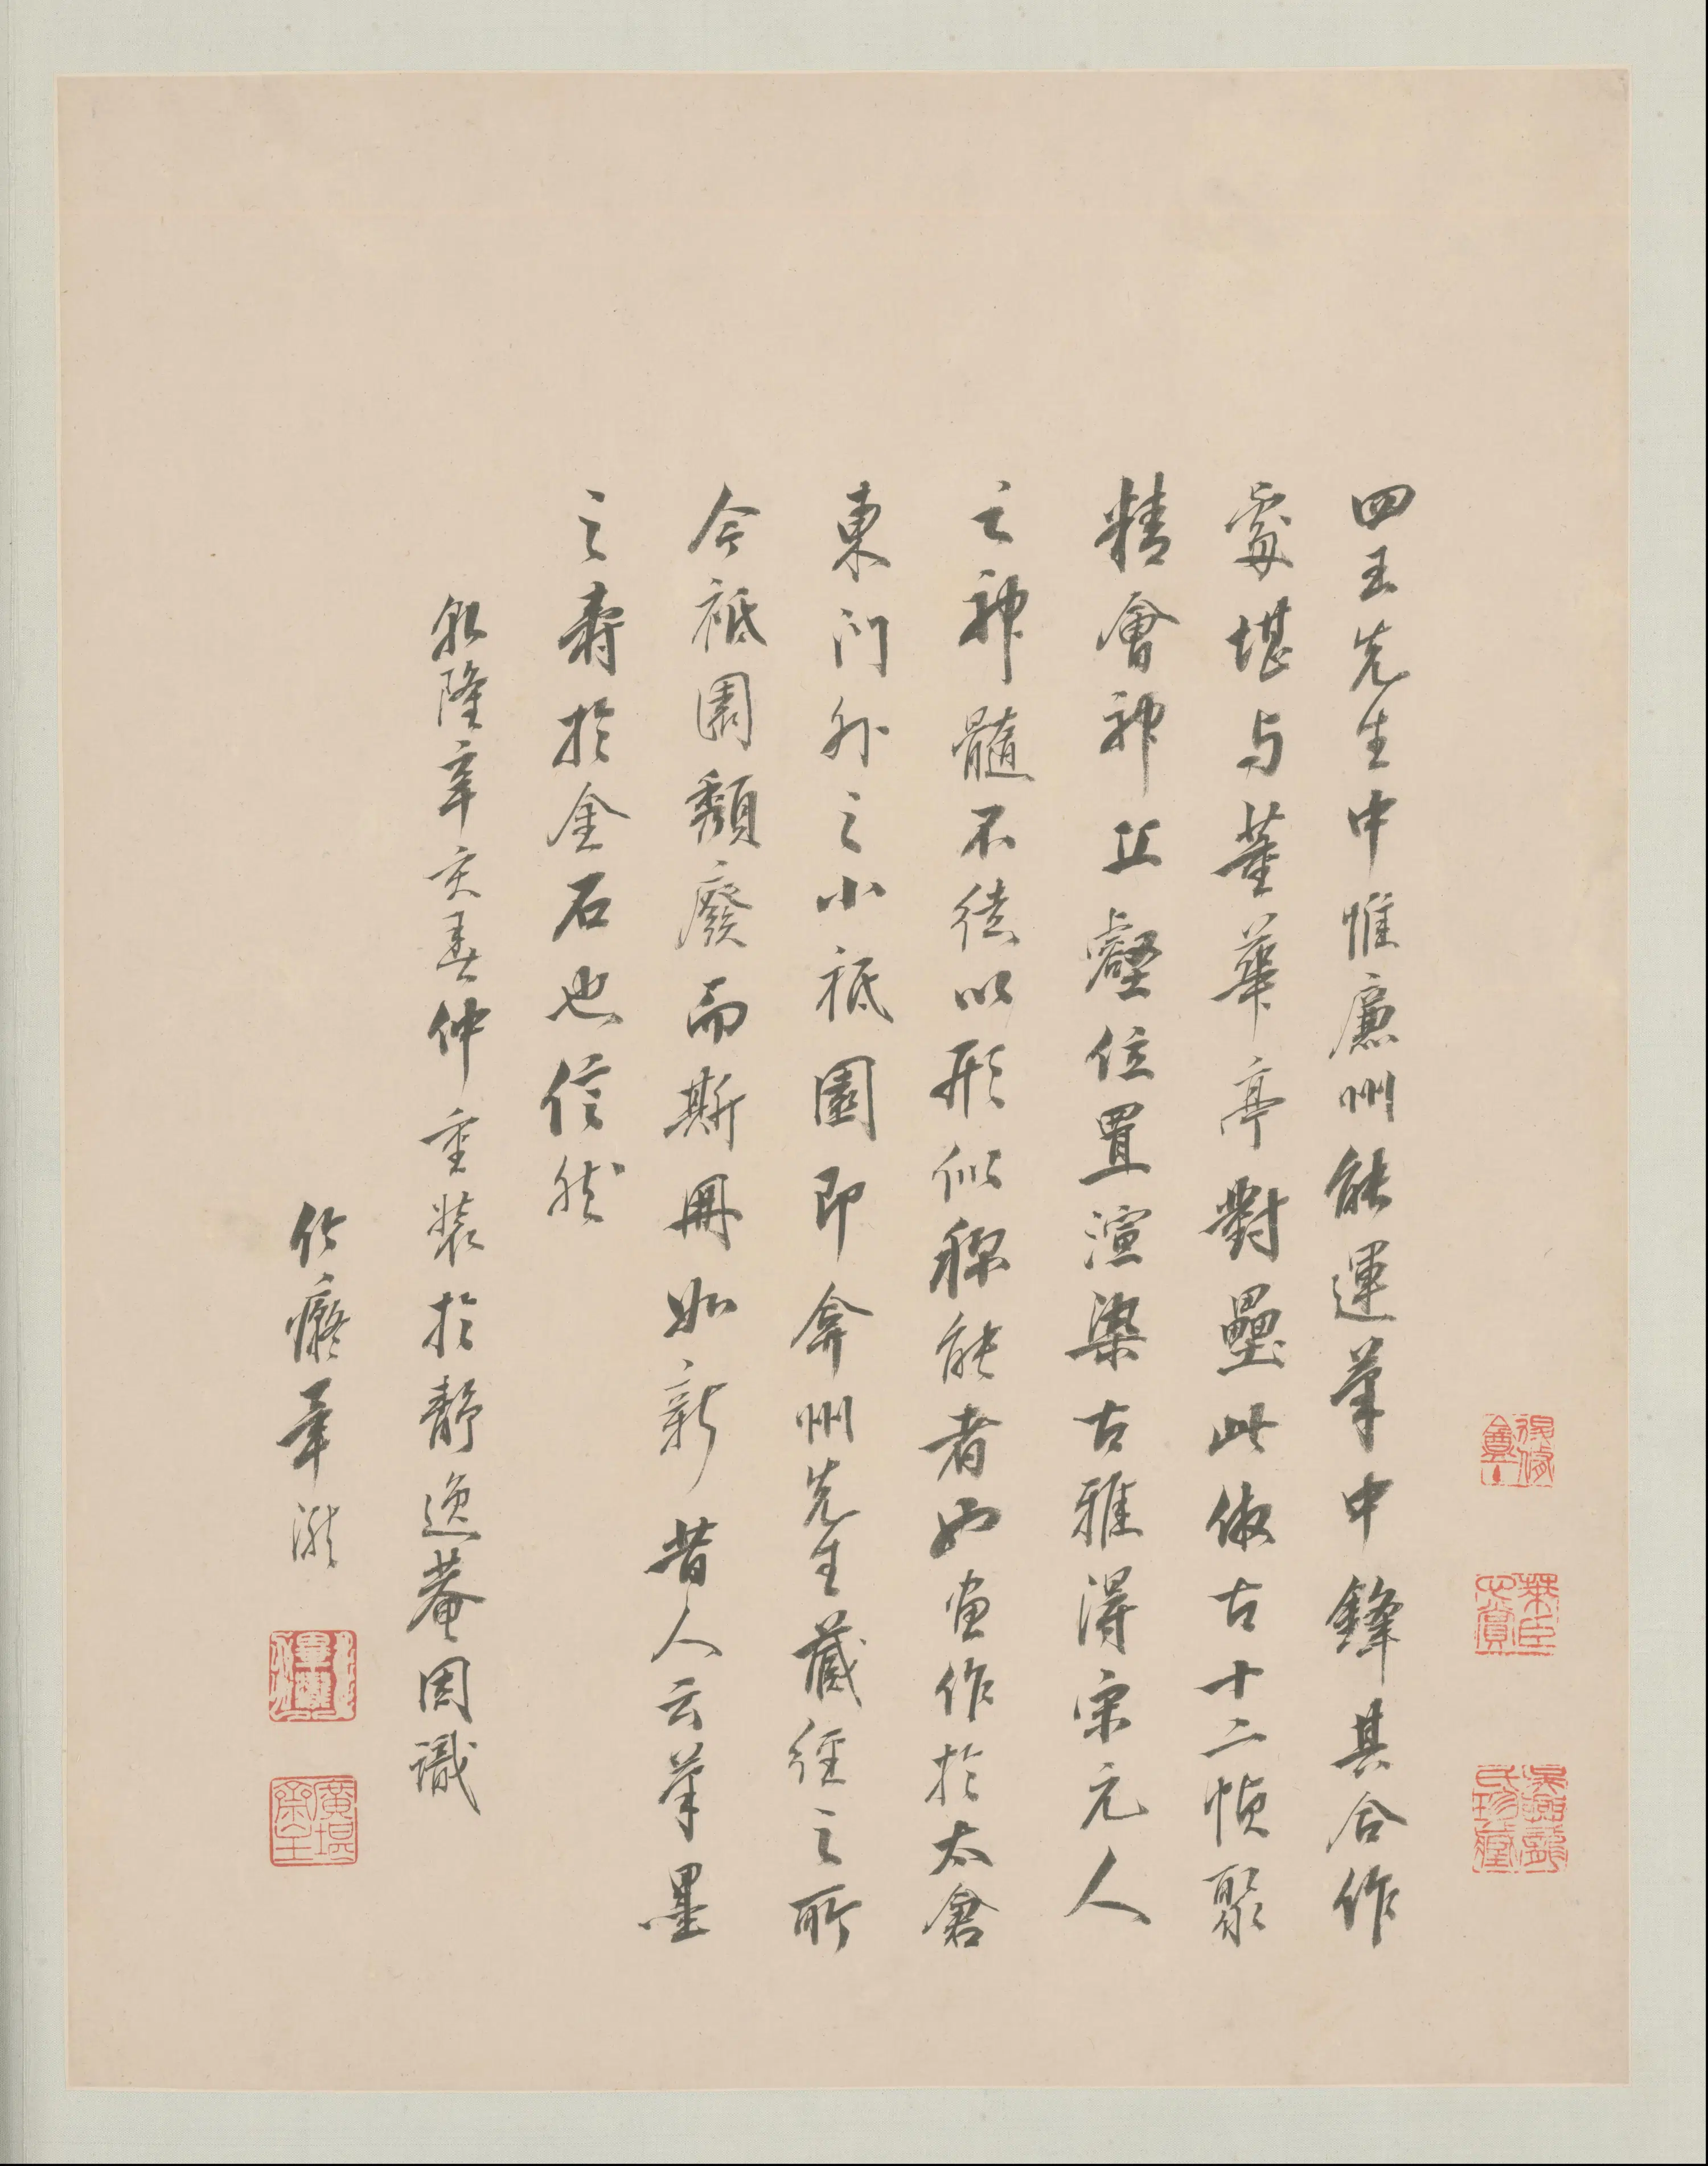 四王先生中惟廉州能運筆中鋒其合作
處堪与董華亭對壘此倣古十二幀聚
精會神丘壑位置渲染古雅得宋元人
之神髓不徒以形似稱能者也畫作於太倉
東门外之小祇園即弇州先生藏經之所
今祗園頹廢而斯冊如新昔人云筆墨
之壽於金石也信然
乾隆辛亥春仲重装於靜逸菴因識
竹癡畢瀧
畢瀧
廣堪
齋主
棻臣
心賞
氏珍藏